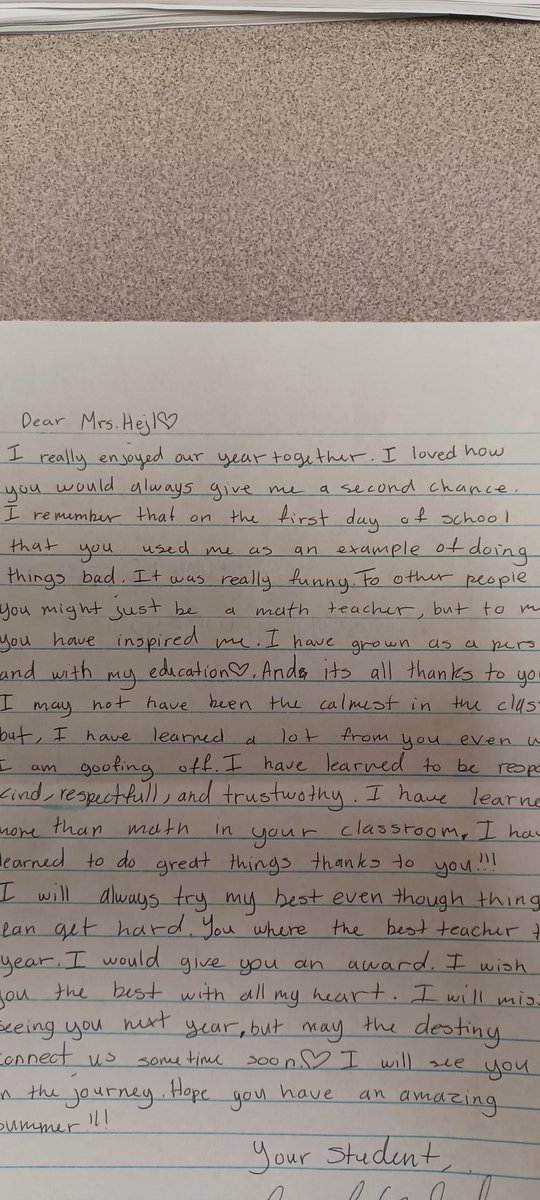 Dear Mrs. Hejl♡
I really enjoyed our year together. I loved how
you would always give me a second chance.
I remember that on the first day of school
that you used me as an example of doing
things bad. It was really funny. To other people
you might just be a math teacher, but to m
you have inspired me. I have grown as a pers
and with my education♡. And its all thanks to yo
I may not have been the calmest in the clas
but, I have learned a lot from you even w
I am goofing off. I have learned to be respo
kind, respectfull, and trustwothy. I have learne
more than math in your classroom. I hav
learned to do great things thanks to you!!!
I will always try my best even though thing
can get hard. You where the best teacher t
year. I would give you an award. I wish
you the best with all my heart. I will mis
seeing you next year, but may the destiny
connect us sometime soon.♡ I will see you
n the journey. Hope you have an amazing
summer!!!
Your student,